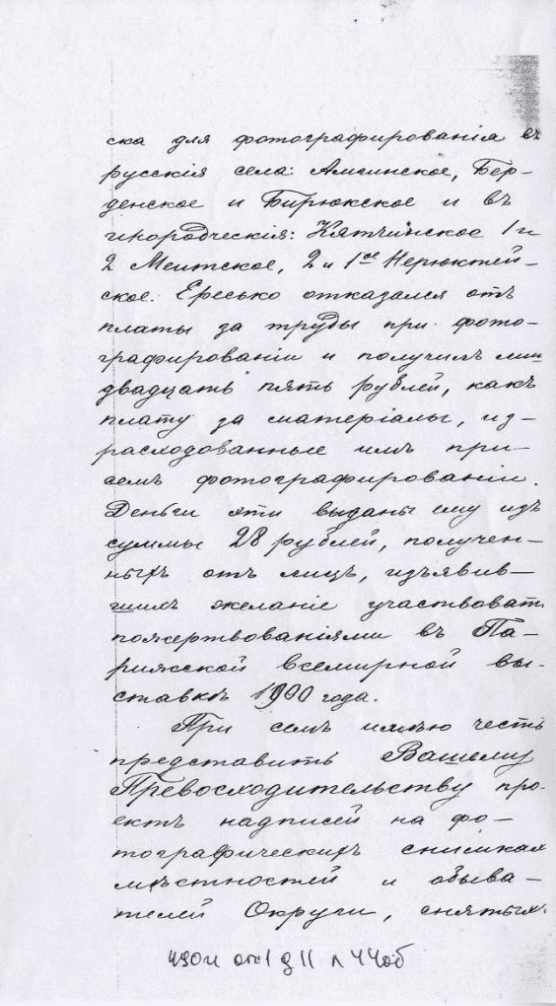 ска для фотографированія въ
русскія села: Амгинское, Бер-
денское и Бирюкское и въ
инородческія: Кятчинское 1 и
2 Меитское, 2 и 1ое Нерюктей-
ское. Ересько отказался отъ
платы за труды при фото-
графированіи и получилъ лишь
двадцать пять рублей, какъ
плату за матеріалы, из-
расходованные имъ при
семъ фотографированіи.
Деньги эти выданы ему изъ
суммы 28 рублей, получен-
ныхъ отъ лицъ, изъявив-
шихъ желаніе участвовать
пожертвованіями въ Па-
рижской всемирной вы-
ставкѣ 1900 года.
При семъ имѣю честь
представить Вашему
Превосходительству про-
ектъ надписей на фо-
тографическихъ снимкахъ
мѣстностей и обыва-
телей Округи, снятыхъ
490и оп1 д11 л44об